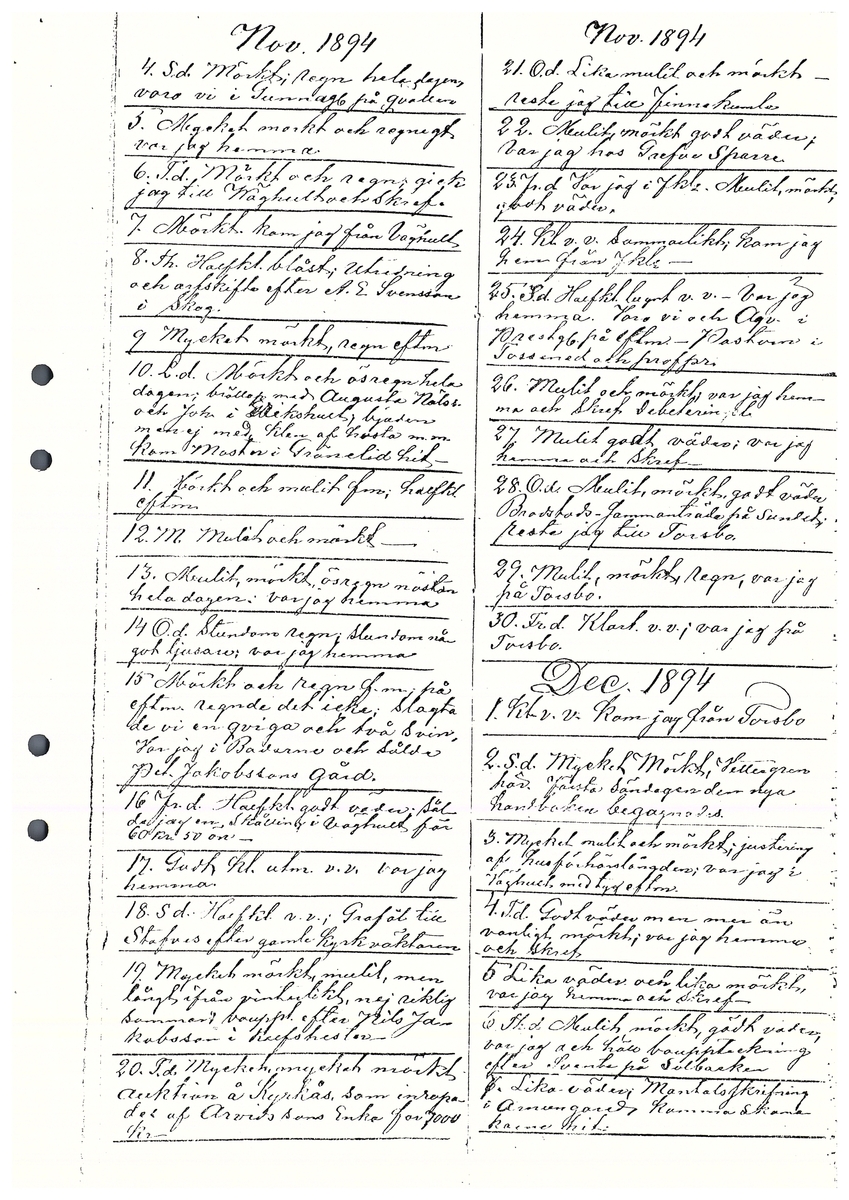 Nov. 1894
4. S.d. Mörkt, regn hela dagen,
voro vi i Tunnagb på qvällen
5. Mycket mörkt och regnigt
var jag hemma.
6. T.d. Mörkt och regn; gick
jag till Wäghult och skref.
7. Mörkt. kom jag från Väghult
8. Th. Halfkl. blåst; Utredning
och arfskifte efter A. E. Svensson
i Skog.
9 Mycket mörkt, regn eftm
10. L.d. Mörkt och ösregn hela
dagen; med Augusta Nils
och Joh. i bjuden
men ej med af m.m.
kom Moster i Tränelid hit—
11. Mörkt och mulit fm; halfkl
eftm.
12. M. Mulit och mörkt —
13. Mulit, mörkt, ösregn nästan
hela dagen; var jag hemma
14 O.d. Stundom regn; stundom nå
got ljusare; var jag hemma
15 Mörkt och regn f.m; på
eftm. regnde det icke; slagta
de vi en qviga och två svin,
Var jag i och sålde
Pet. Jakobssons Gård.
16 Fr.d. Halfkl. godt väder; sål
de jag en i Väghult för
60 kr 50 öre —
17. Godt, kl. utm. v.v. var jag
hemma.
18. S.d. Halfkl v.v.; Grafäl till
Stafvis efter gamle Kyrkväktaren
19 Mycket mörkt, mulit, men
långt ifrån vinterlikt, nej riktig
sommar; bouppt. efter Nils Ja
kobsson i
20. T.d. Mycket, mycket mörkt
auktion å Kyrkås, som inropa
des af Arvidssons Enka för 7000
kr—
Nov. 1894
21. O.d. Lika mulit och mörkt —
reste jag till Finnekumla
22. Mulit, mörkt godt väder;
Var jag hos Grefve Sparre
23. Fr.d Var jag i Jkhz. Mulit, mörkt,
godt väder.
24. Kl. v.v. Sommarlikt; kom jag
hem från —
25. Sd Halfkl lugnt v.v. — Var jag
hemma. Voro vi och Agv. i
Prestgb på eftm. — Pastorn i
Tossened och
26. Mulit och mörkt; var jag hem-
ma och skref
27. Mulit godt väder; var jag
hemma och skref—
28. O.d. Mulit, mörkt, godt väder
Brodstods-sammanträde på Sundet;
reste jag till Torsbo.
29. Mulit, mörkt, regn, var jag
på Torsbo.
30. Fr.d. Klart v.v.; var jag på
Torsbo.
Dec. 1894
1. Kl v.v. Kom jag från Torsbo
2. S.d. Mycket Mörkt, Vettergren
här. Första Söndagen den nya
handboken begagnades.
3. Mycket mulit och mörkt; justering
af husförhörslängden; var jag i
Väghult med tyg eftm.
4. T.d. Godt väder men mer än
vanligt mörkt; var jag hemma
och skref
5 Lika väder och lika mörkt,
var jag hemma och skref—
6 Th.d. Mulit, mörkt, godt väder,
var jag och höll bouppteckning
efter Svente på Solbacken
7. Lika väder; Mantalsskrifning
i Amungared, Komma Skara
hit.